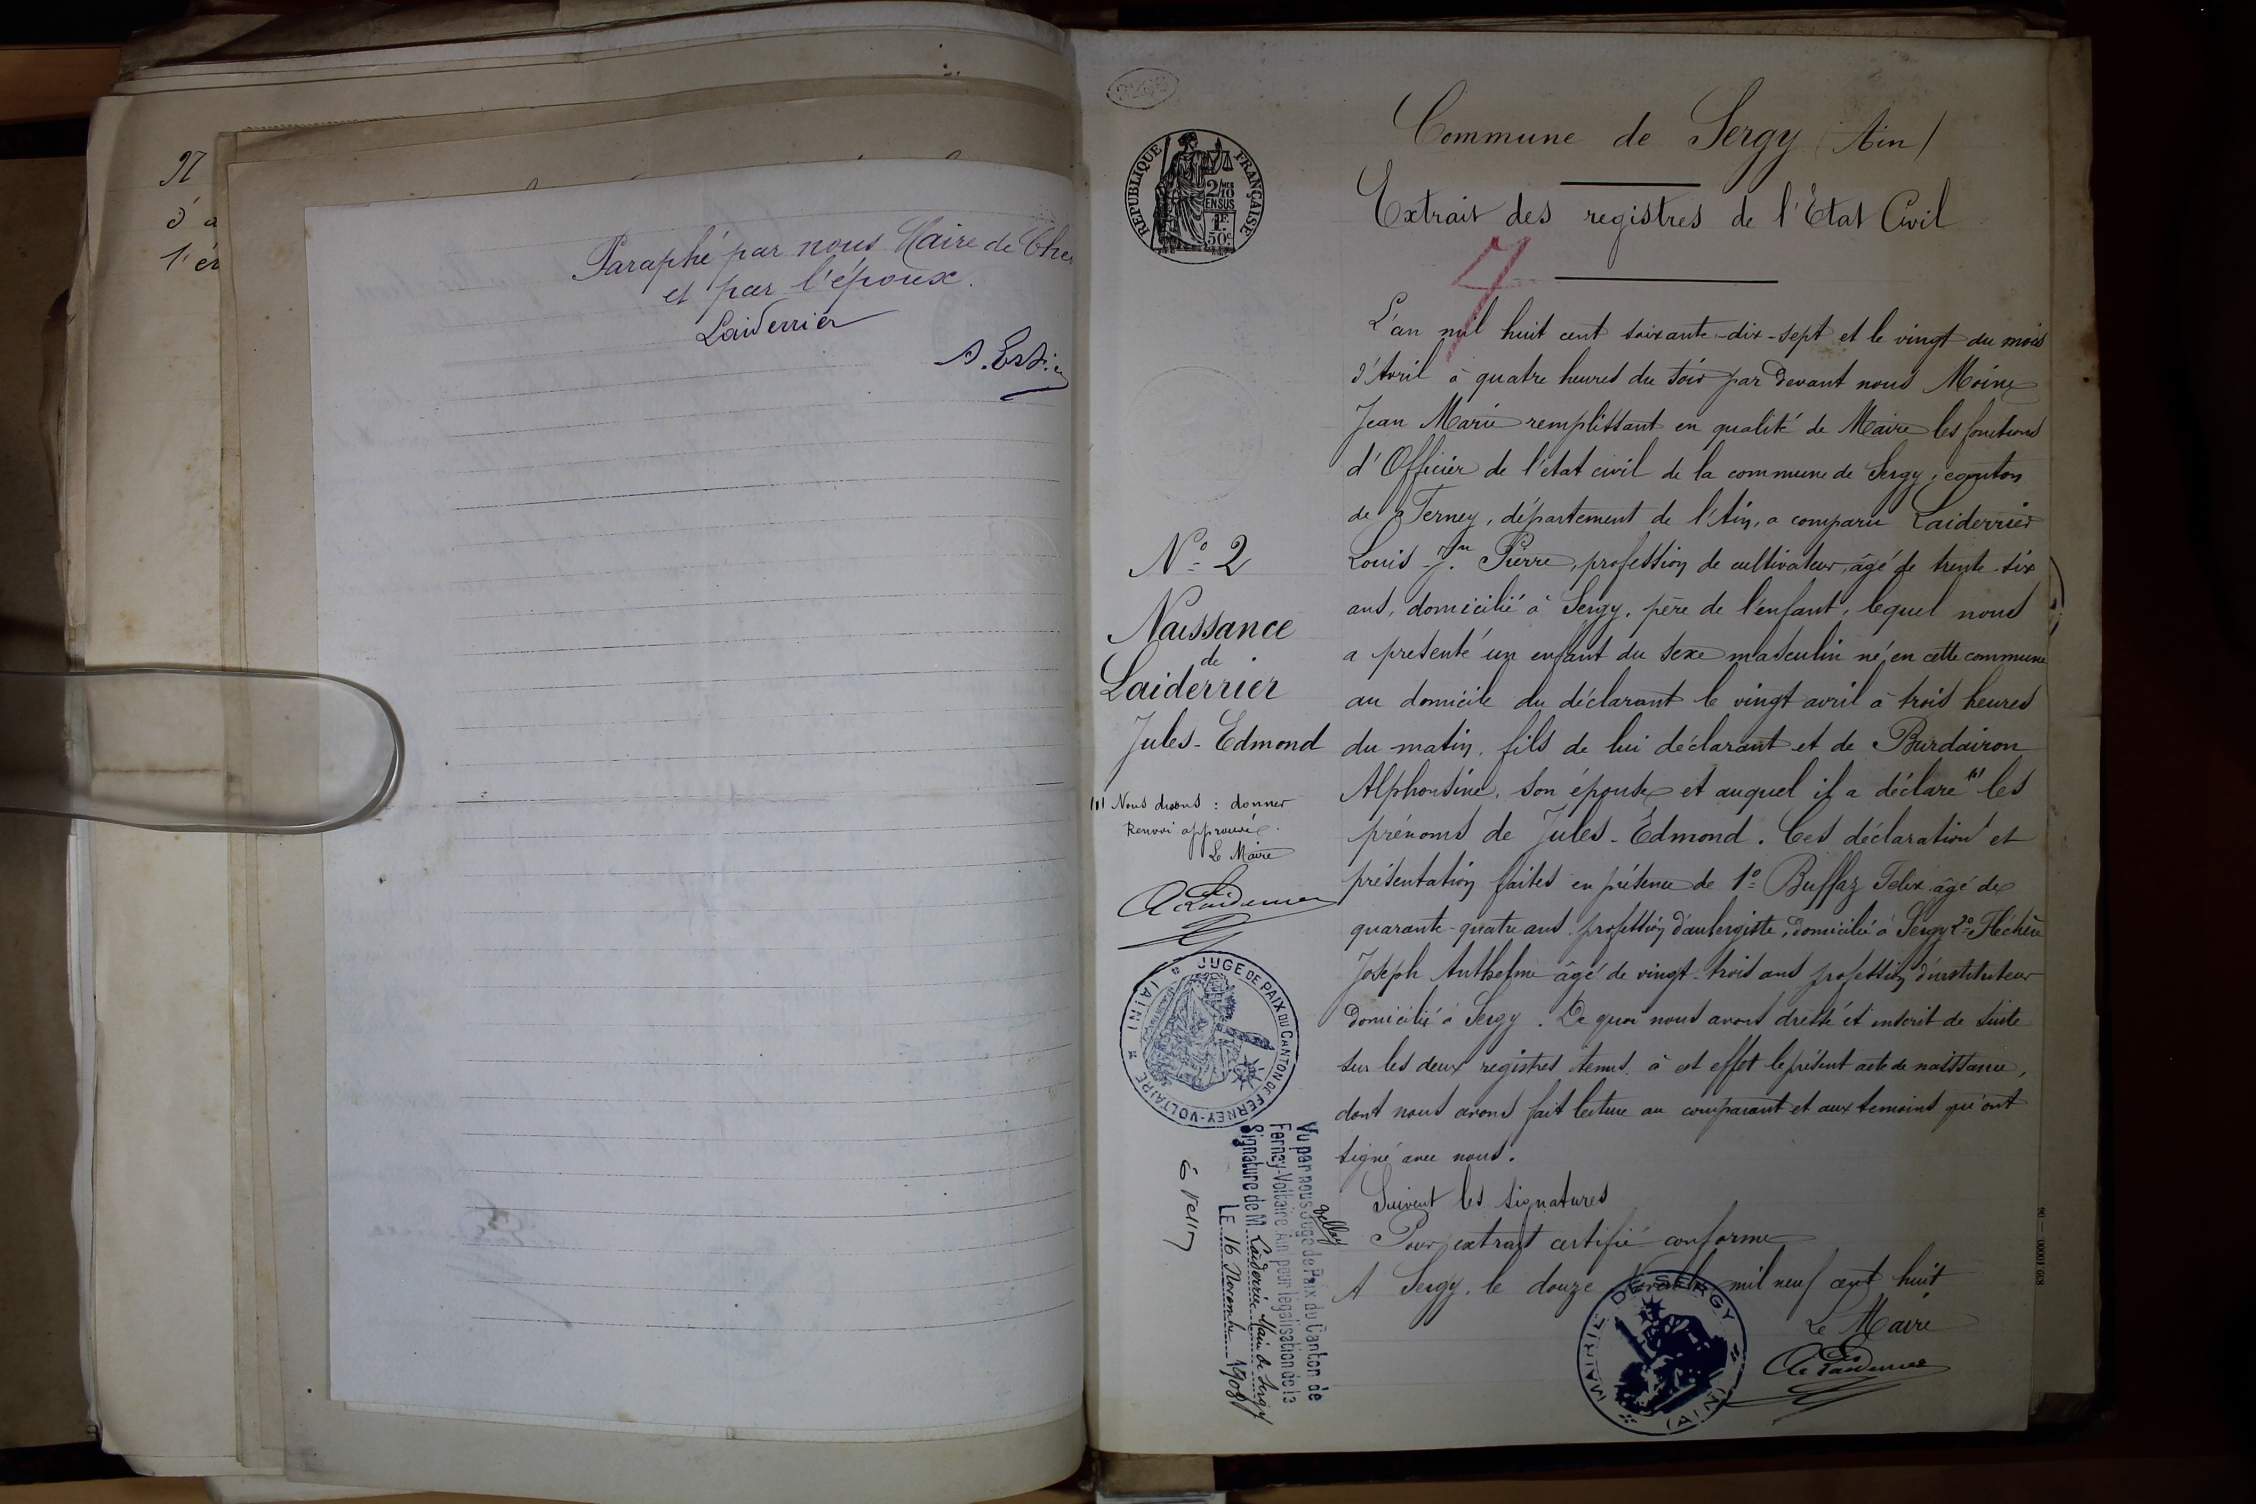 97
d'a
l'ér
Paraphé par nous Maire de Che
et par l'époux.
Laiderrier
RÉPUBLIQUE FRANÇAISE
2/10 MES
EN SUS
1F.
50c.
Commune de Sergy (Ain)
Extrait des registres de l'Etat Civil
7
N° 2
Naissance
de
Laiderrier
Jules-Edmond
(1) Nous disons : donner
Renvoi approuvé.
Le Maire
JUGE DE PAIX DU CANTON DE FERNEY-VOLTAIRE (AIN)
Vu par nous Juge de Paix du Canton de
Ferney-Voltaire Ain pour légalisation de la
Signature de M. Laiderrier Maire de Sergy
LE 16 Novembre 1908
L'an mil huit cent soixante-dix-sept et le vingt du mois
d'Avril à quatre heures du soir par devant nous Moine
Jean Marie remplissant en qualité de Maire les fonctions
d'Officier de l'état civil de la commune de Sergy, canton
de Ferney, département de l'Ain, a comparu Laiderrier
Louis Jn Pierre, profession de cultivateur, âgé de trente-six
ans, domicilié à Sergy, père de l'enfant, lequel nous
a présenté un enfant du sexe masculin né en cette commune
au domicile du déclarant le vingt avril à trois heures
du matin, fils de lui déclarant et de Burdairon
Alphonsine, son épouse et auquel il a déclaré (1) les
prénoms de Jules-Edmond. Ces déclaration et
présentation faites en présence de 1° Buffaz Felix âgé de
quarante-quatre ans profession d'aubergiste, domicilié à Sergy 2° Fléchère
Joseph Anthelme âgé de vingt-trois ans profession d'instituteur
domicilié à Sergy. De quoi nous avons dressé et inscrit de suite
sur les deux registres tenus à cet effet le présent acte de naissance,
dont nous avons fait lecture au comparant et aux temoins qui ont
signé avec nous.
Suivent les signatures
Pour extrait certifié conforme
A Sergy, le douze Novembre mil neuf cent huit
Le Maire
MAIRIE DE SERGY (AIN)